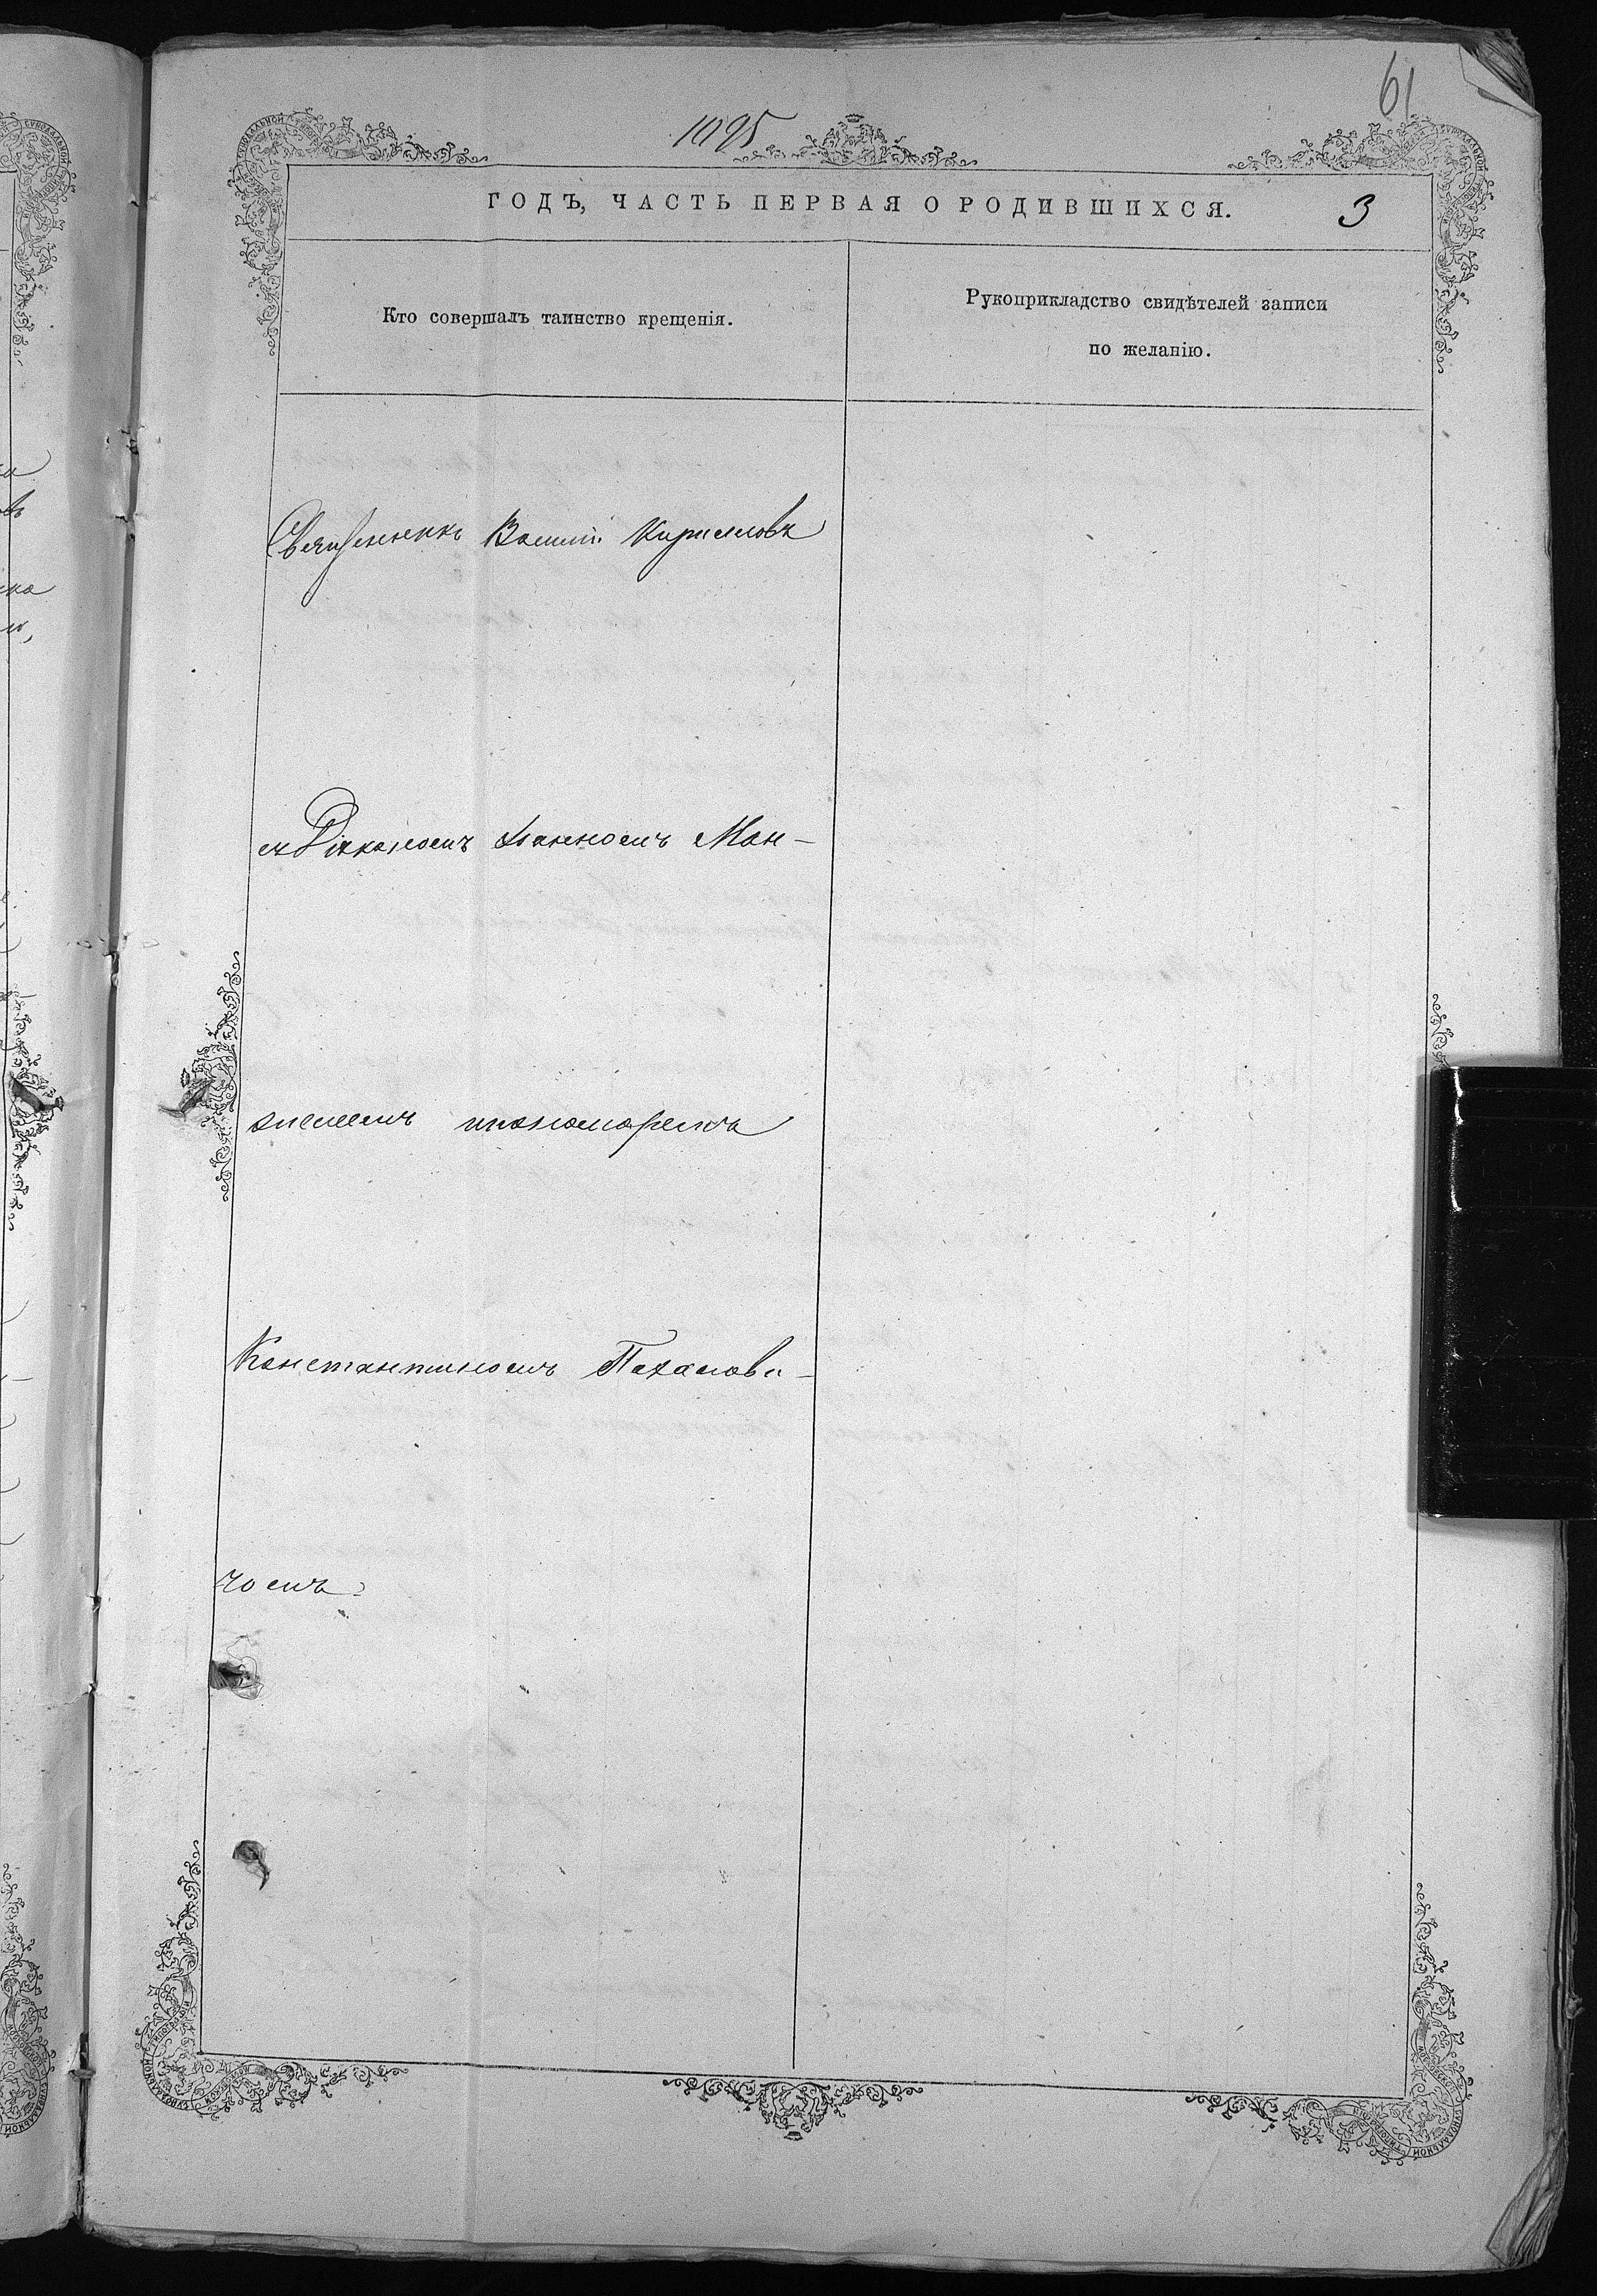 61
1895
ГОДЪ, ЧАСТЬ ПЕРВАЯ О РОДИВШИХСЯ.
3
Кто совершалъ таинство крещенія.
Рукоприкладство свидѣтелей записи
по желанію.
Священникъ Василій Кирилловъ
съ Діакономъ Іоанномъ Ман-
жилеемъ и пономаремъ
Константиномъ Пахалови-
чомъ